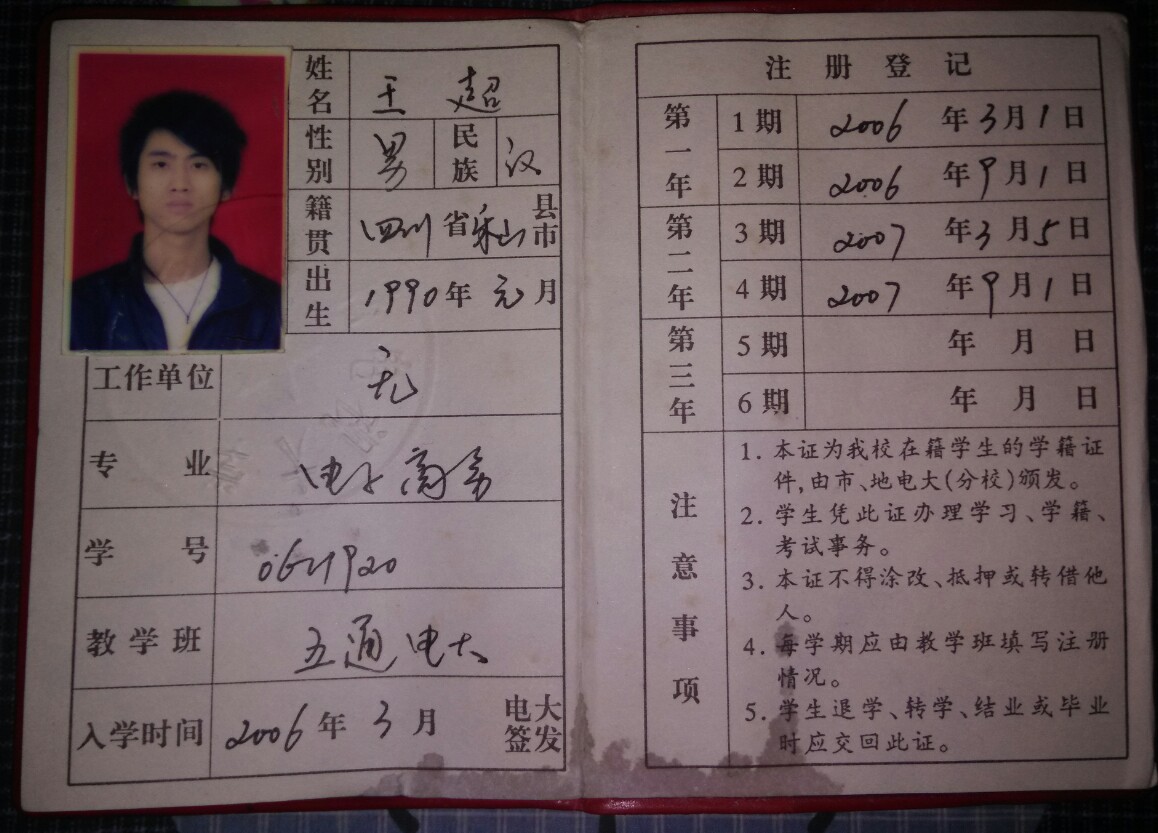 姓名 王超
性别 男 民族 汉
籍贯 四川省乐山县市
出生 1990年元月
工作单位 无
专业 电子商务
学号
教学班 五通电大
入学时间 2006年3月 电大签发
注册登记
第一年 1期 2006年3月1日
2期 2006年9月1日
第二年 3期 2007年3月5日
4期 2007年9月1日
第三年 5期 年月日
6期 年月日
注意事项
1.本证为我校在籍学生的学籍证
件,由市、地电大(分校)颁发。
2.学生凭此证办理学习、学籍、
考试事务。
3.本证不得涂改、抵押或转借他
人。
4.每学期应由教学班填写注册
情况。
5.学生退学、转学、结业或毕业
时应交回此证。